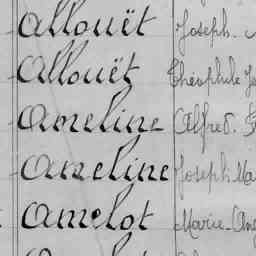 Allouët Joseph
Allouët Théophile
Ameline Alfred
Ameline Joseph Ma
Amelot Marie-Ang